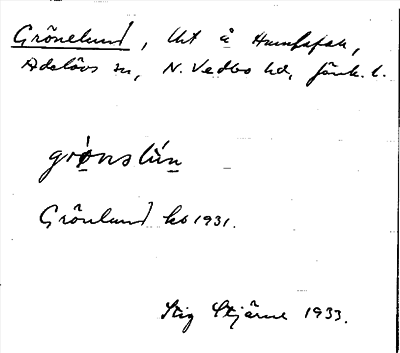 Grönelund, lht å Humsfall,
Adelövs sn, N. Vedbo hd, Jönk. l.
grø̀nslún
Grönlund kb 1931.
Stig Stjärne 1933.